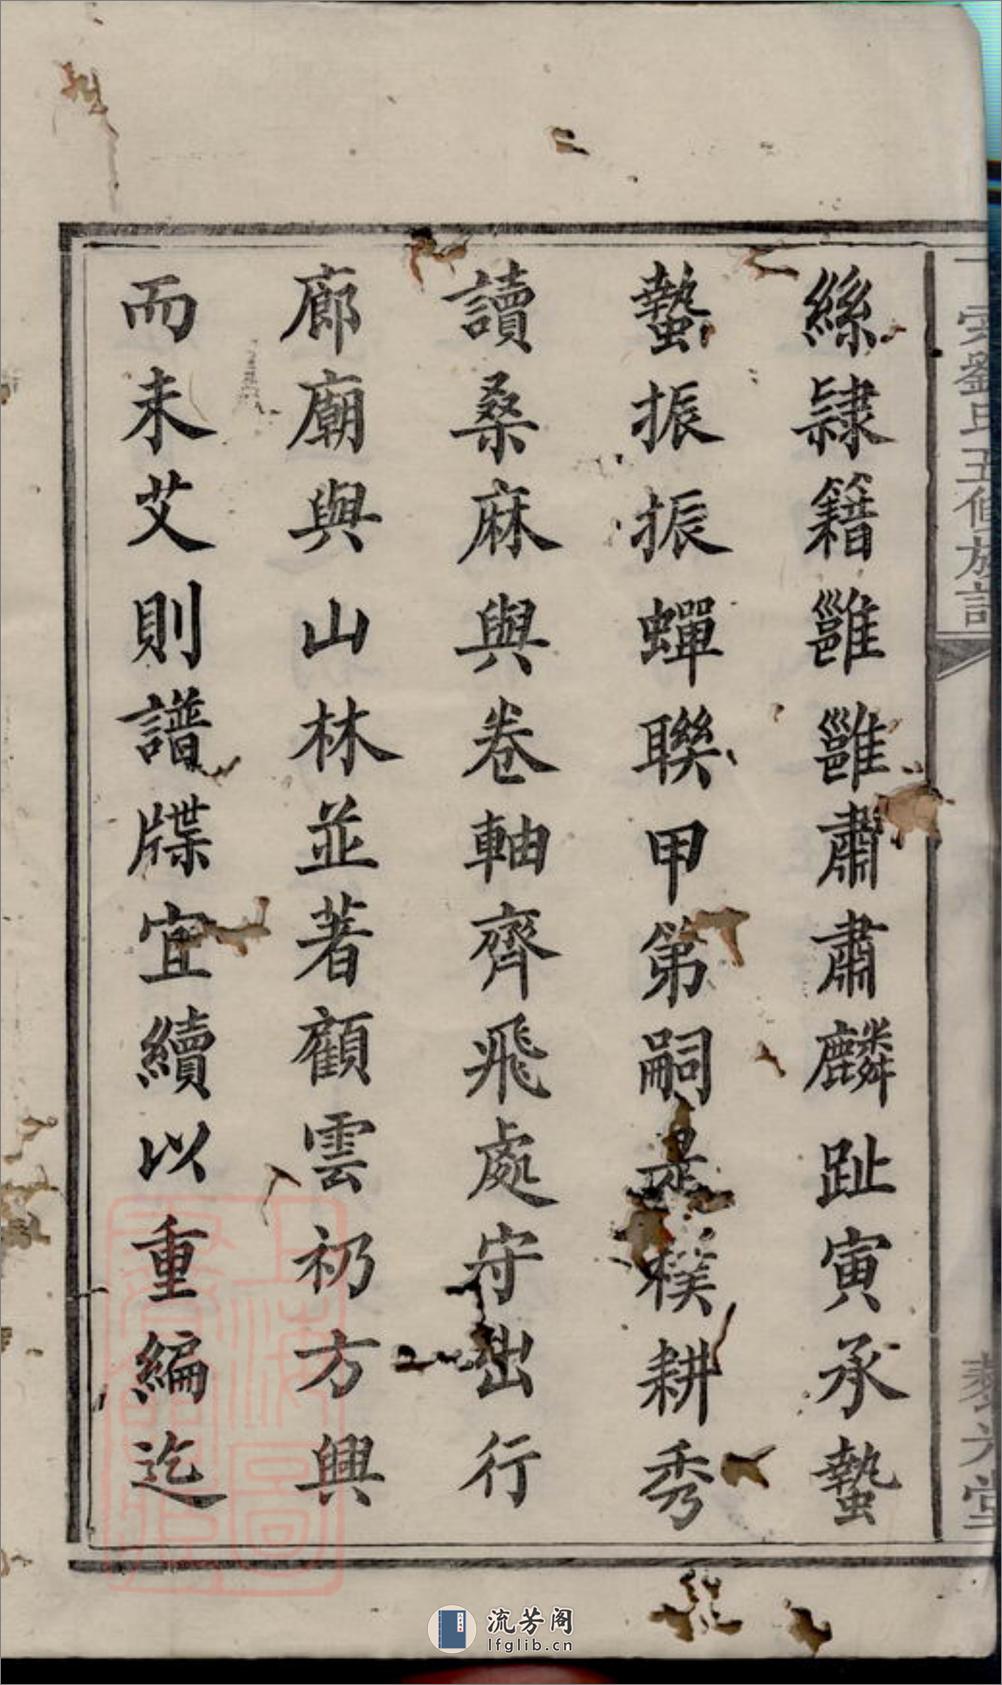 絲隷籍雝雝肅肅麟趾寅承蟄
蟄振振蟬聯甲第嗣是樸耕秀
讀桑麻與卷軸齊飛處守出行
廊廟與山林並著顧雲礽方興
而未艾則譜牒宜續以重編迄
劉氏五修族
堂
上海圖
流芳阁
lfglib.cn